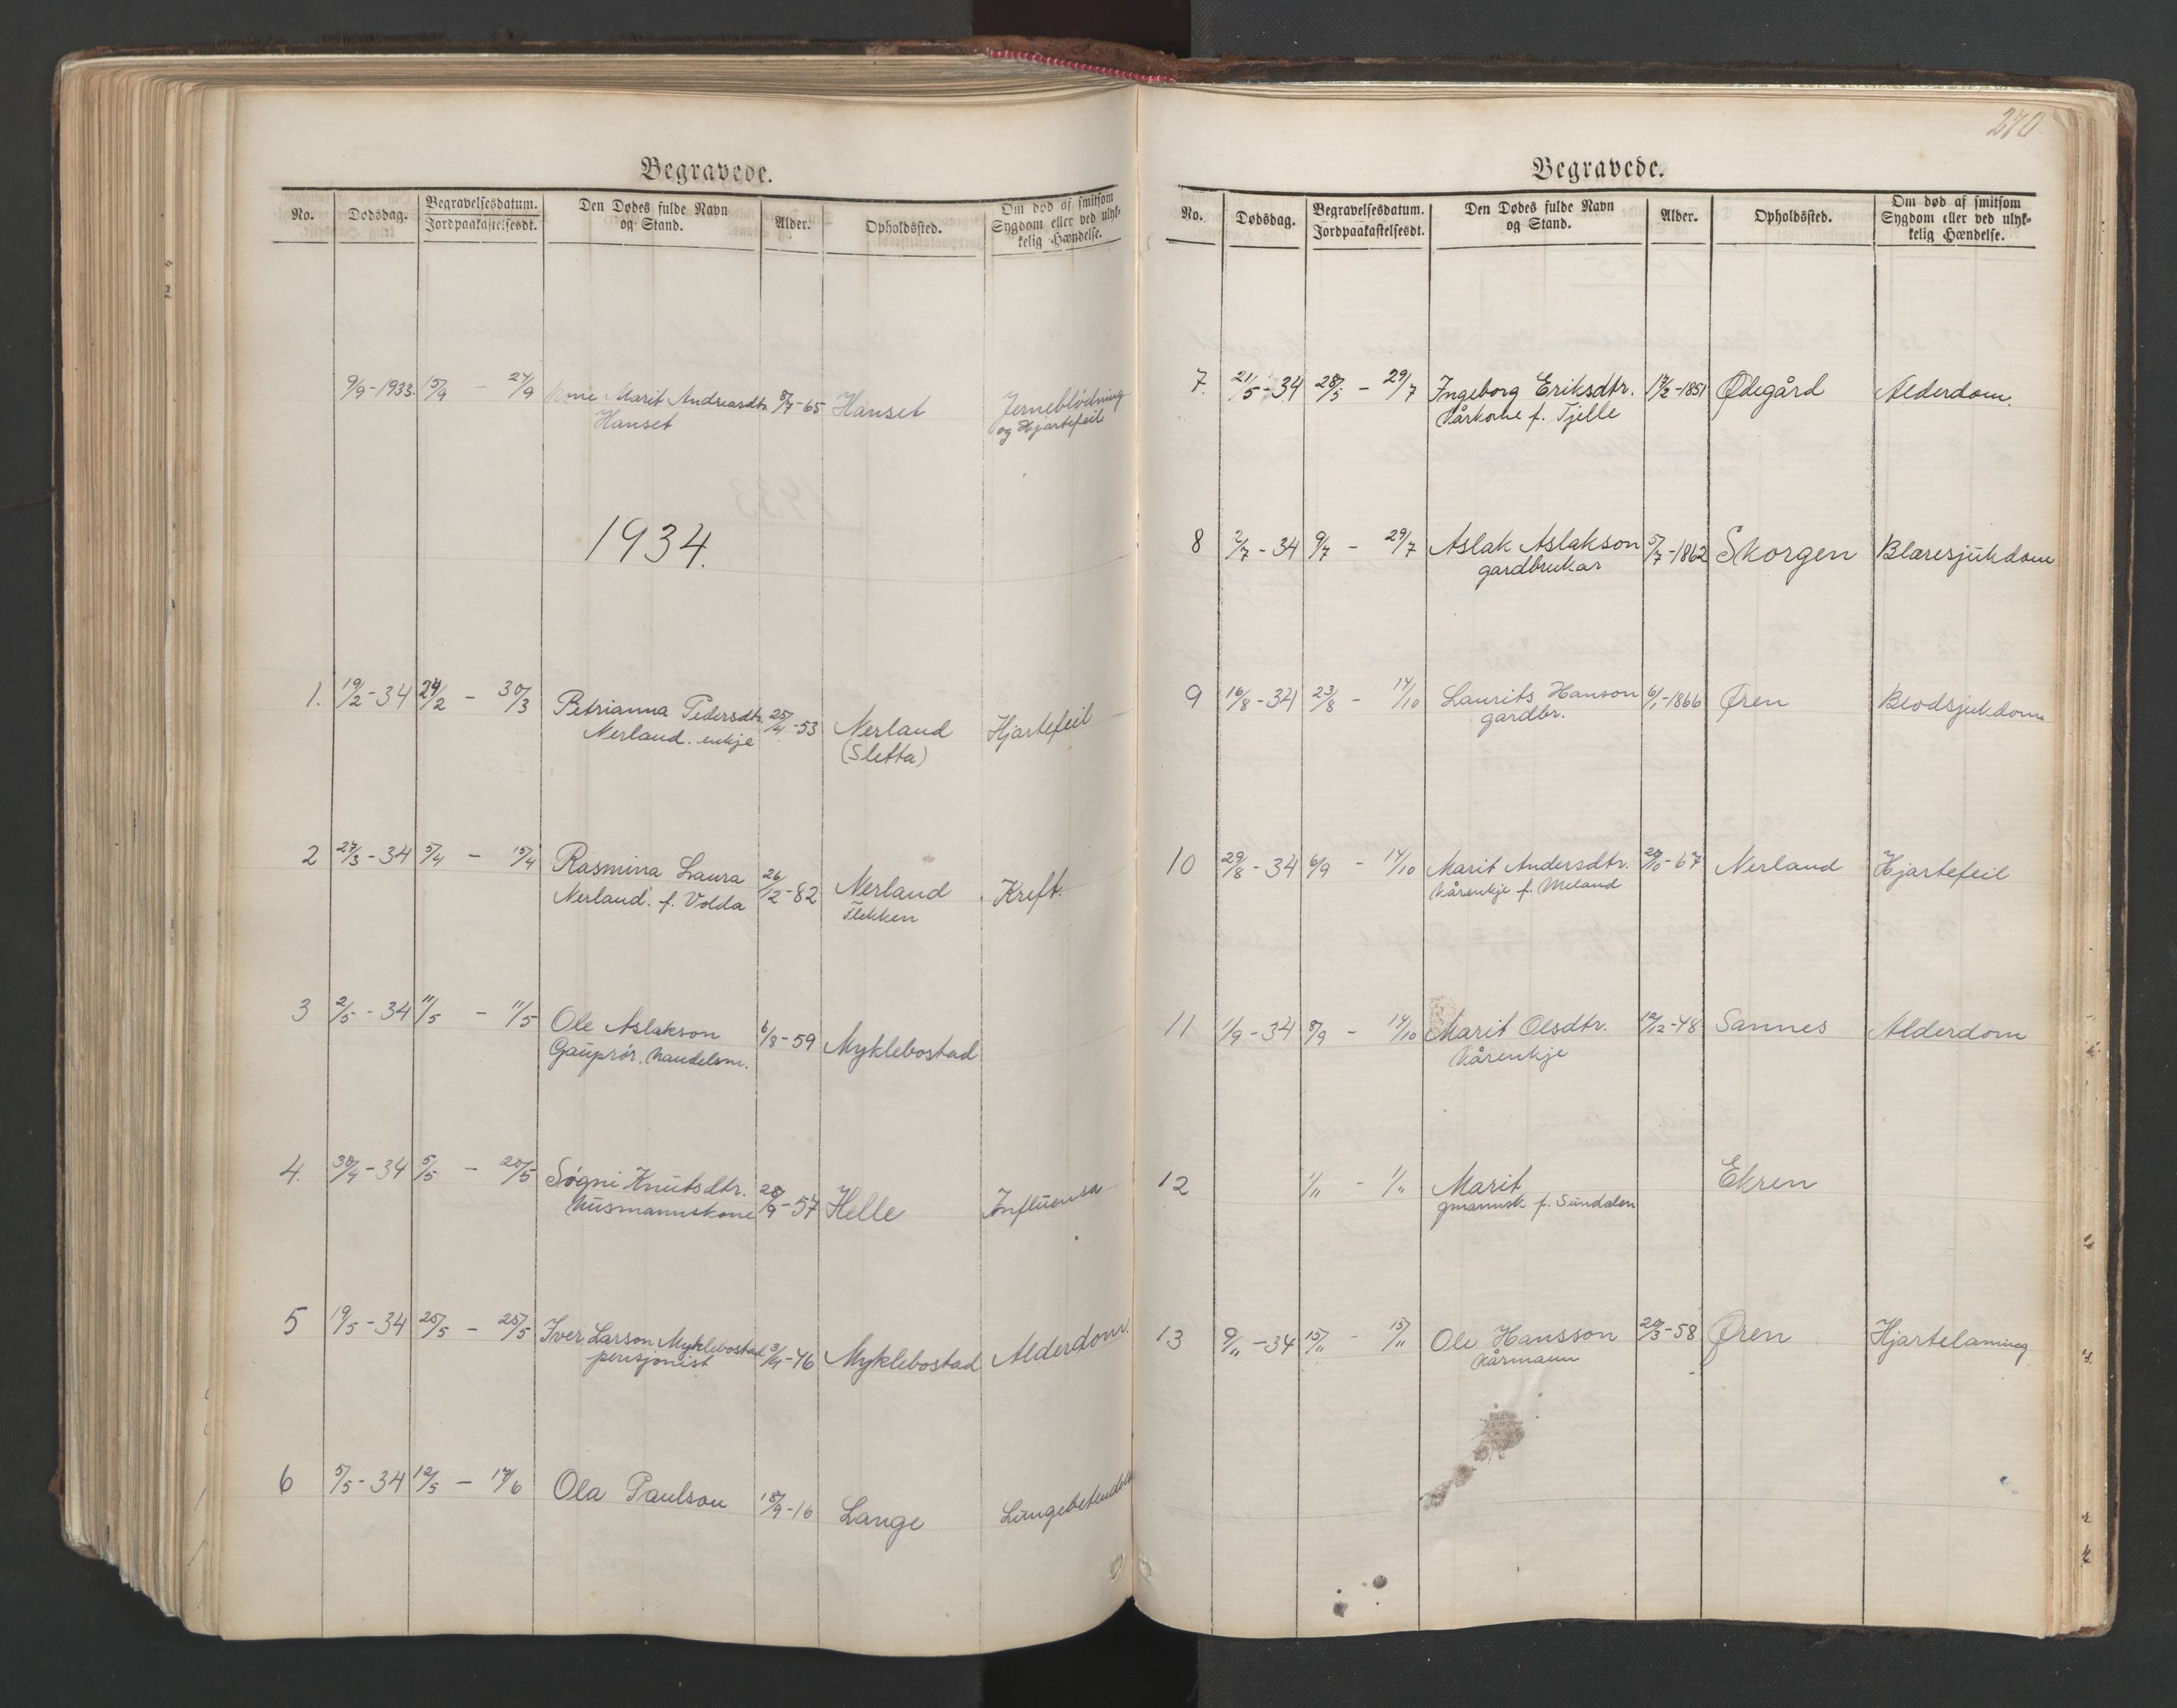 Begravede.
No. Dødsdag. Begravelsesdatum. Jordpaakastelsesdt. Den Dødes fulde Navn og Stand. Alder. Opholdssted. Om død af smitsom Sygdom eller ved ulyk-kelig Hændelse.
9/9-1933. 15/9 - 24/9 Marit Andreasdtr. 8/7-65 Hanset Jerneblødning
Hanset og Hjartefeil
1934.
1. 19/2-34 24/2 - 30/3 Petrianna Pedersdtr. 25/4-53 Nerland Hjartefeil
Nerland. enkje (Sletta)
2 27/3-34 5/4 - 15/4 Rasmina Laura 26/12-82 Nerland Kreft.
Nerland. f. Volda Flekken
3 2/5-34 11/5 - 11/5 Ole Aslakson 6/8-59 Myklebostad
Gauprør. handelsm.
4. 30/4-34 5/5 - 20/5 Søgni Knutsdtr. 28/9-57 Helle Influensa
husmannskone
5 19/5-34 25/5 - 25/5 Iver Larson Myklebostad 3/4-46 Myklebostad Alderdom.
pensjonist
6 5/5-34 12/5 - 17/6 Ola Paulson 18/9-16 Lange
270
Begravede.
No. Dødsdag. Begravelsesdatum. Jordpaakastelsesdt. Den Dødes fulde Navn og Stand. Alder. Opholdssted. Om død af smitsom Sygdom eller ved ulyk-kelig Hændelse.
7. 21/5-34 28/5 - 29/7 Ingeborg Eriksdtr. 17/2-1851 Ødegård Alderdom.
Kårkone f. Tjelle
8 2/7-34 9/7 - 29/7 Aslak Aslakson 5/7-1862 Skorgen Blæresjukdom
gardbrukar
9 16/8-34 23/8 - 14/10 Laurits Hanson 6/1-1866 Øren Blodsjukdom
gardbr.
10 29/8-34 6/9 - 14/10 Marit Andersdtr. 20/10-67 Nerland Hjartefeil
Kårenkje f. Meland
11 1/9-34 8/9 - 14/10 Marit Olsdtr. 12/12-48 Sannes Alderdom
Kårenkje
12 1/11 - 1/11 Marit Ekren
gmannsk f. Sundalen
13 9/11-34 15/11 - 15/11 Ole Hansson 20/3-58 Øren Hjartelaming
Kårmann